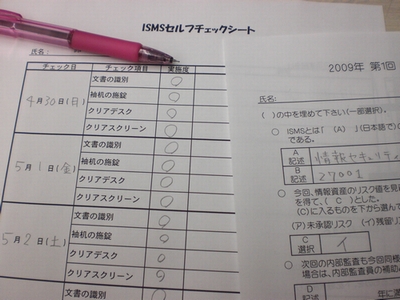 ISMSセルフチェックシート
氏名:
チェック日 チェック項目 実施度
4月30日(日) 文書の識別 ○
袖机の施錠 ○
クリアデスク ○
クリアスクリーン ○
5月1日(金) 文書の識別 ○
袖机の施錠 ○
クリアデスク ○
クリアスクリーン ○
5月2日(土) 文書の識別 ○
袖机の施錠 ○
クリアデスク ○
クリアスクリーン ○
文書の識別
2009年 第1回
氏名:
( )の中を埋めて下さい(一部選択)。
○ ISMSとは「 (A) 」(日本語で)の
である。
A 記述 情報セキュリティ
B 記述 27001
○ 今回、情報資産のリスク値を見
を得て、( C )とした。
(C)に入るものを下から選んで
(ア)未承認リスク (イ)残留リ
C 選択 イ
○ 次回の内部監査も今回同様
場合は、内部監査員の補助
D